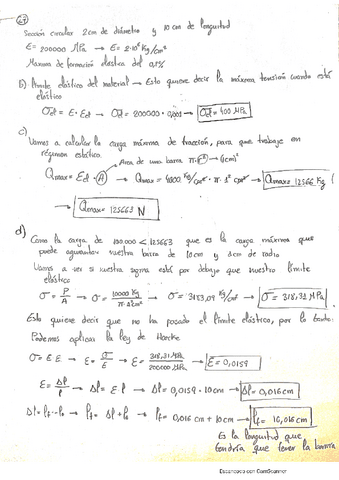 Sección circular 2cm de diámetro y 10 cm de longuitud
E= 200000 MPa → E= 2·10⁶ Kg/cm²
Máxima deformación elástica del 0,2%
b) límite elástico del material → Esto quiere decir la máxima tensión cuando está
elástico
σel = E · Eel → σel = 200000 · 0,002 → σel = 400 MPa
c)
Vamos a calcular la carga máxima de tracción, para que trabaje en
régimen elástico.
Área de una barra π·r² → (cm²)
Qmax = Eel · A → Qmax = 4000 Kg/cm² · π · 1² cm² → Qmax = 12566 Kg
→ Qmax = 125663 N
d)
Como la carga de 100.000 < 125663 que es la carga máxima que
puede aguantar nuestra barra de 10cm y 1cm de radio
Vamos a ver si nuestra sigma está por debajo que nuestro límite
elástico
σ = P/A → σ = 10000 Kg/π·1²cm² → σ = 3183,09 Kg/cm² → σ = 318,31 MPa
Esto quiere decir que no ha pasado el límite elástico, por lo tanto
Podemos aplicar la ley de Hoocke
σ = E·E → E = σ/E → E = 318,31 MPa → E = 0,0159
E = Δl/l → Δl = E · l → Δl = 0,0159 · 10cm → Δl = 0,016cm
Δl = lf - lo → lf = Δl + lo → lf = 0,016 cm + 10cm → lf = 10,016 cm
Es la longuitud que
tendría que tener la barra
Escaneado con CamScanner